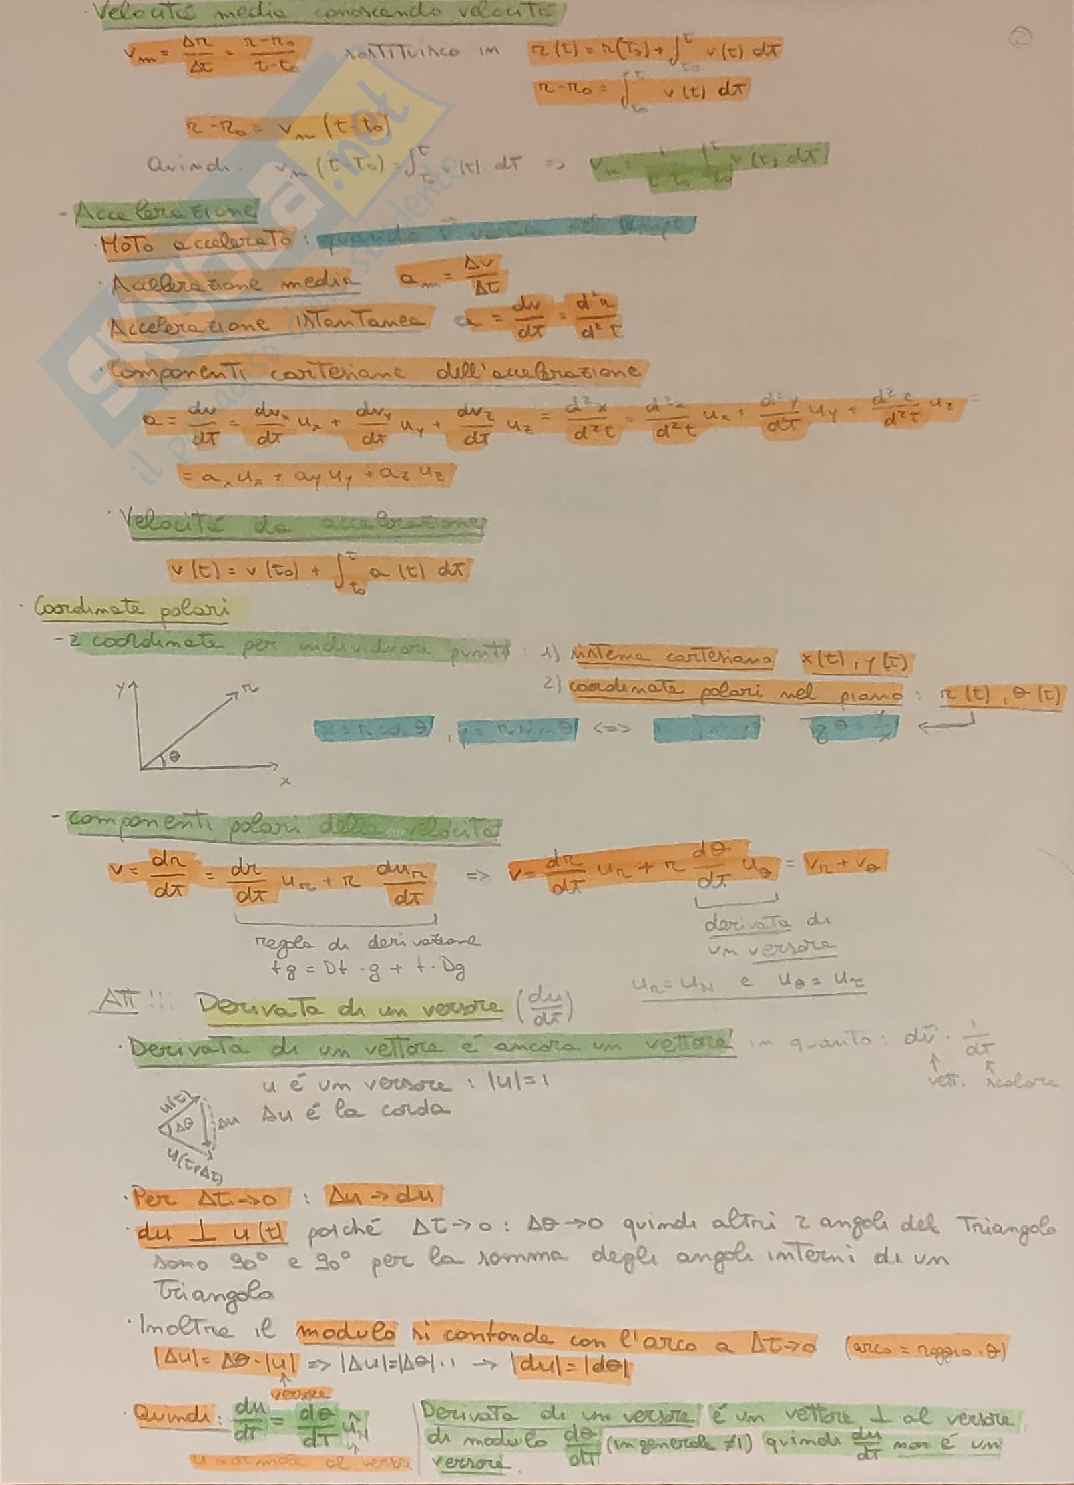 ②
· Velocità media conoscendo velocità
v_m = Δr/Δt = r-r₀/t-t₀ sostituisco in r(t) = r(t₀) + ∫_{t₀}^{t} v(t) dt
r-r₀ = ∫_{t₀}^{t} v(t) dt
r-r₀ = v_m (t-t₀)
Quindi: v_m (t-t₀) = ∫_{t₀}^{t} v(t) dt => v_m = 1/t-t₀ ∫_{t₀}^{t} v(t) dt
- Accelerazione
· Moto accelerato: quando v varia nel tempo
· Accelerazione media a_m = Δv/Δt
Accelerazione istantanea a = dv/dt = d²r/d²t
· Componenti cartesiane dell'accelerazione
a = dv/dt = dvₓ/dt uₓ + dv_y/dt u_y + dv_z/dt u_z = d²x/d²t = d²x/d²t uₓ + d²y/dt u_y + d²z/d²t u_z =
= aₓ uₓ + a_y u_y + a_z u_z
· Velocità da accelerazione
v(t) = v(t₀) + ∫_{t₀}^{t} a(t) dt
· Coordinate polari
- 2 coordinate per individuare punto: 1) sistema cartesiano x(t), y(t)
2) coordinate polari nel piano: r(t), θ(t)
y r θ x
x = r cos θ, y = r sin θ <=> tg θ = y/x
- componenti polari della velocità
v = dr/dt = dr/dt u_r + r du_r/dt => v = dr/dt u_r + r dθ/dt u_θ = v_r + v_θ
regola di derivazione
fg = Df · g + f · Dg
derivata di
un versore
u_r = u_N e u_θ = u_t
ATT!!! Derivata di un versore (du/dt)
· Derivata di un vettore è ancora un vettore in quanto: dv · 1/dt
vett. scalare
u è un versore: |u|=1
Δu è la corda
u(t) Δθ Δu u(t+Δt)
· Per Δt->0 : Δu->du
· du ⊥ u(t) poiché Δt->0 : Δθ->0 quindi altri 2 angoli del triangolo
sono 90° e 90° per la somma degli angoli interni di un
triangolo
· Inoltre il modulo si confonde con l'arco a Δt->0 (arco = raggio · θ)
|Δu| = Δθ · |u| => |Δu| = |Δθ| · 1 -> |du| = |dθ|
versore
· Quindi: du/dt = dθ/dt u_N
Derivata di un versore è un vettore ⊥ al versore
di modulo dθ/dt (in generale ≠1) quindi du/dt non è un
versore.